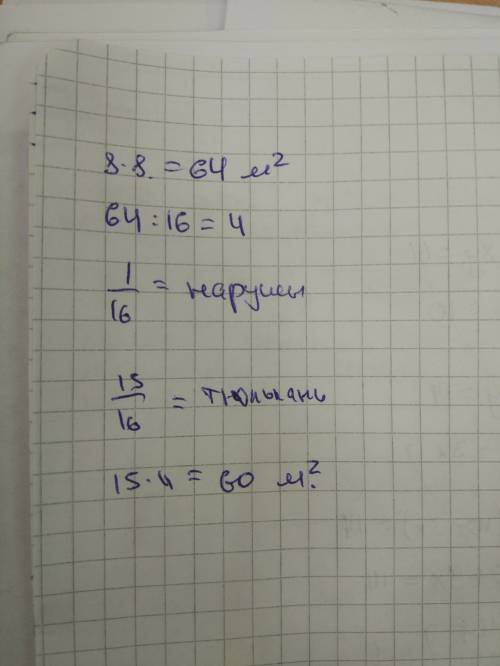 8·8. = 64 м²
64 : 16 = 4
1/16 = нарушы
15/16 = тюльпань
15·4 = 60 м².